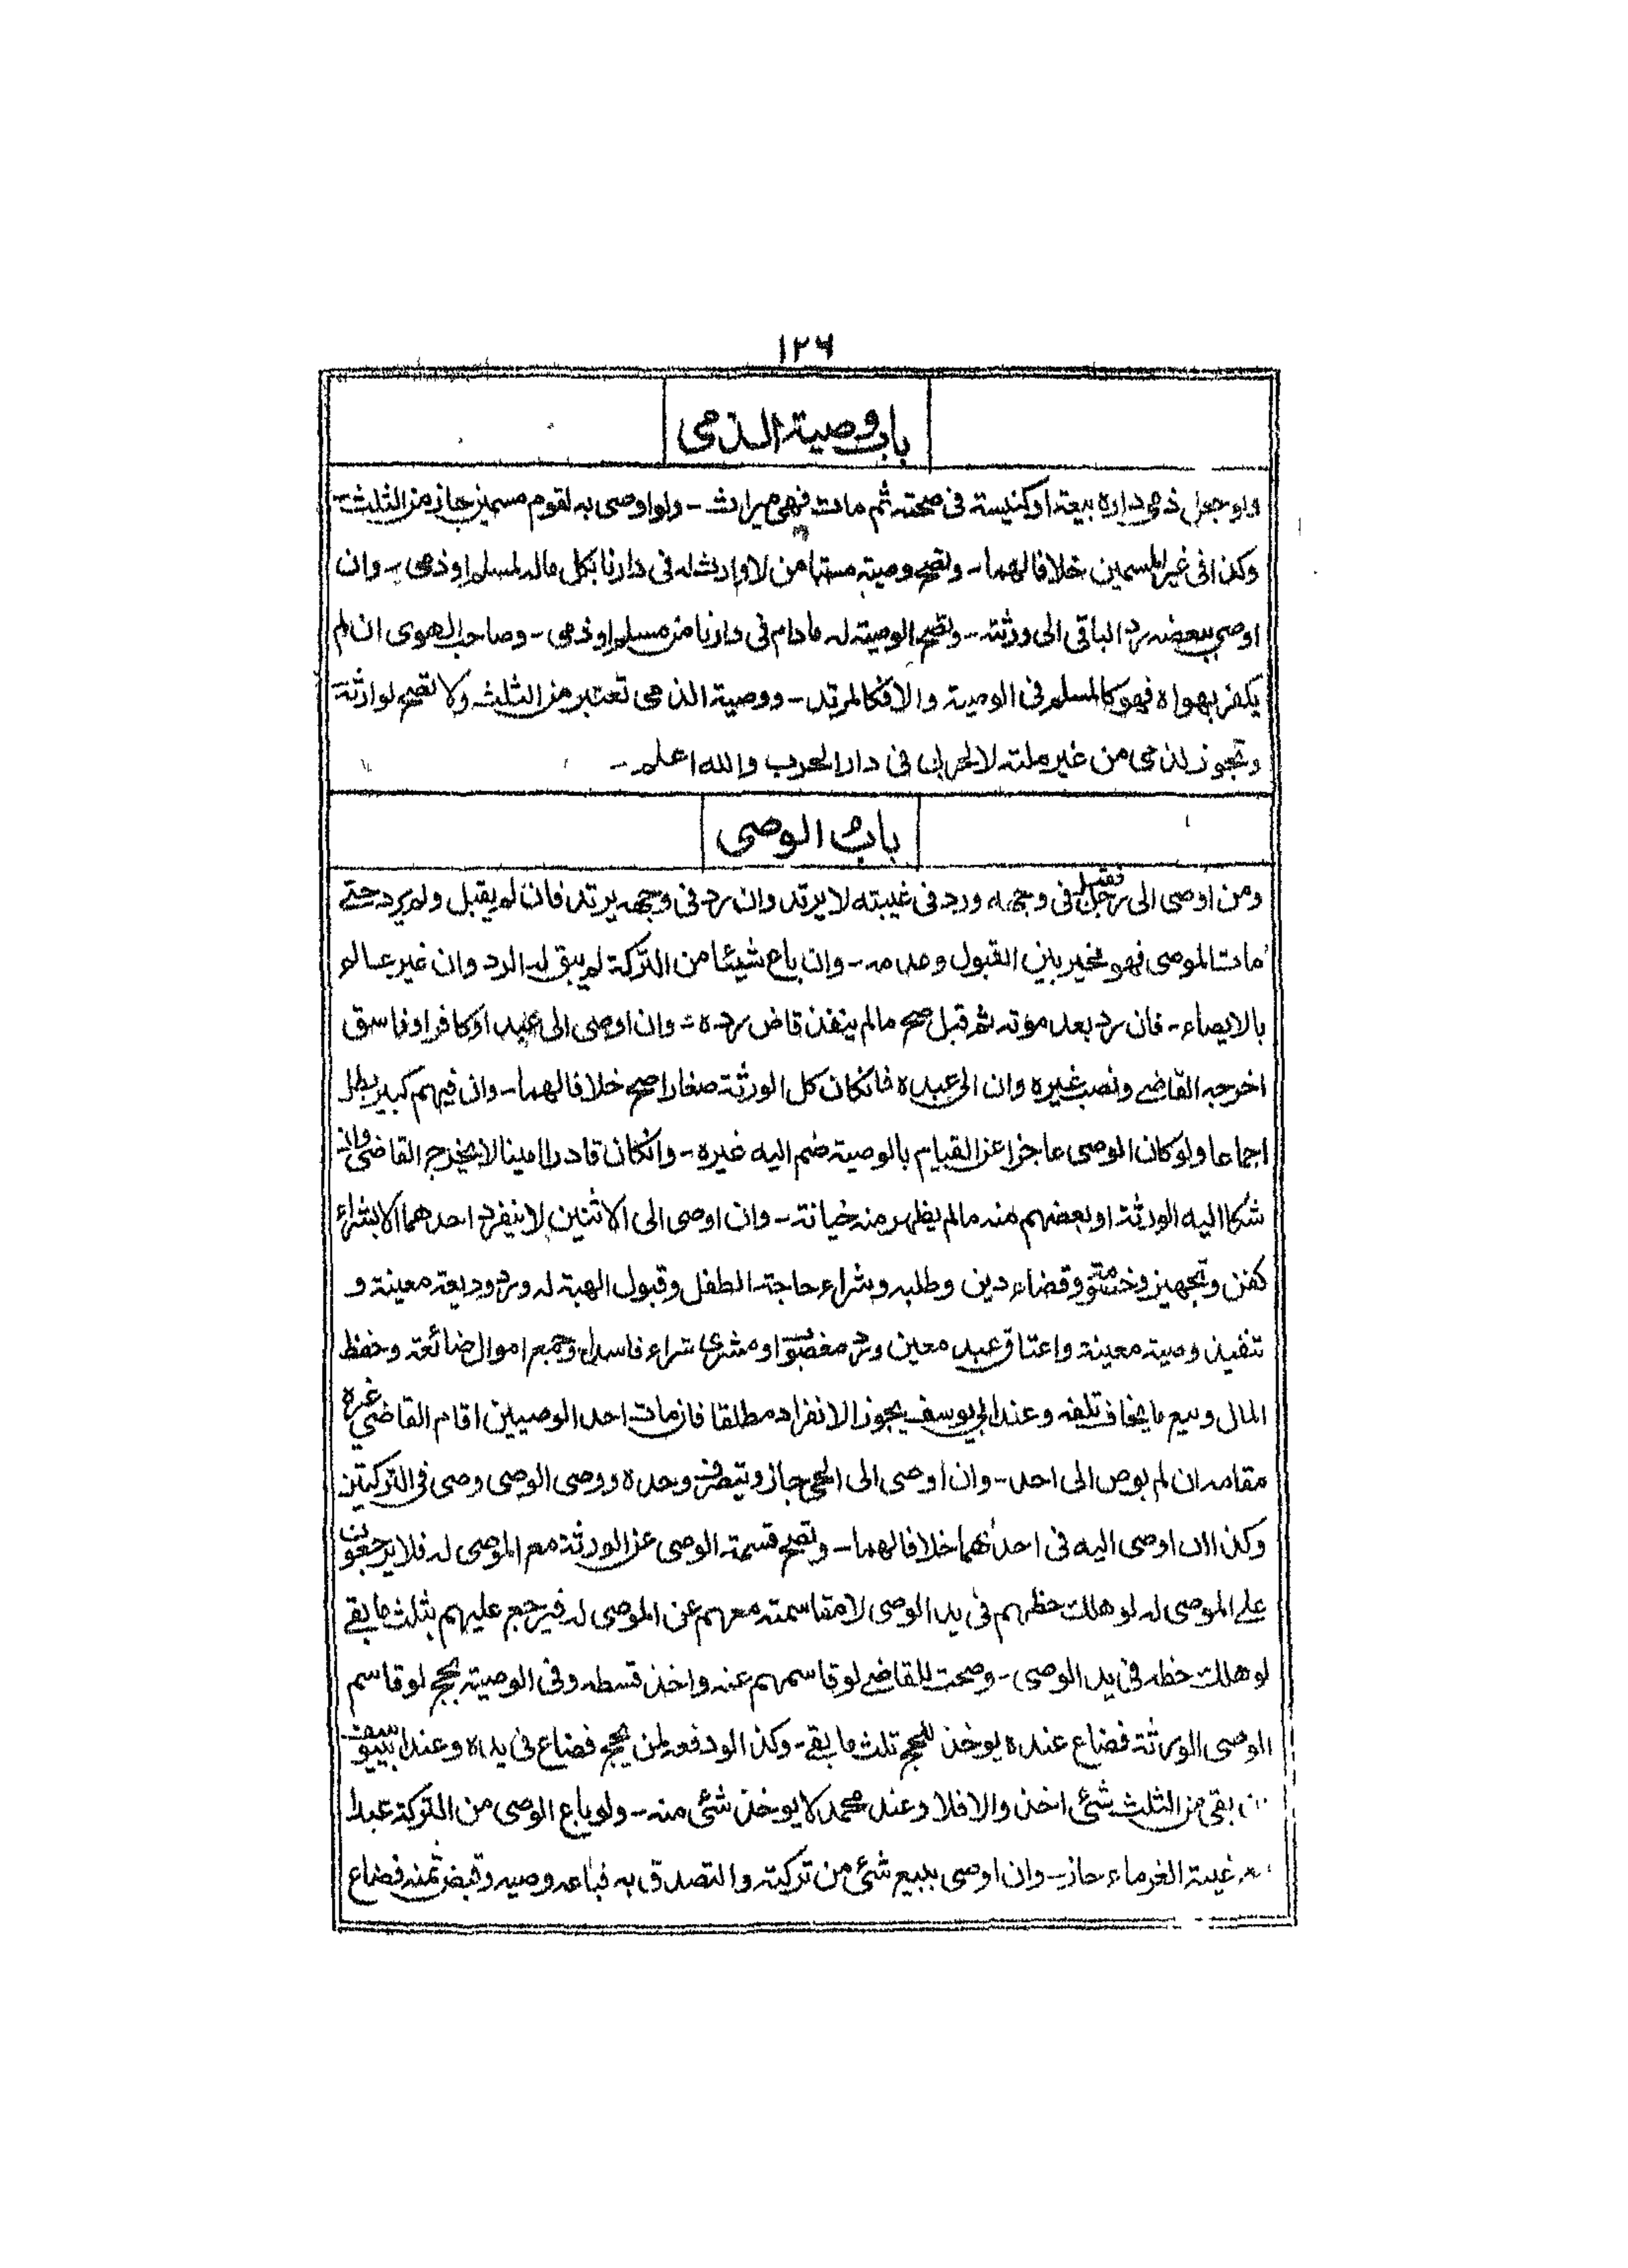 ١٢٦
باب وصية الذمى
ولو جعل ذمى داره بيعة او كنيسة فى صحته ثم مات فهى ميراث - ولو اوصى به لقوم مسمين جاز من الثلث
وكذا فى غير المسمين خلافا لهما - وتصح وصية مستامن لا وارث له فى دارنا بكل ماله لمسلم او ذمى - وان
اوصى ببعضه رد الباقى الى ورثته - وتصح الوصية له مادام فى دارنا من مسلم او ذمى - وصاحب الهوى ان لم
يكفر بهواه فهو كالمسلم فى الوصية والا فكالمرتد - ووصية الذمى تعتبر من الثلث ولا تصح لوارثه
وتجوز لذمى من غير ملته لا لحربى فى دار الحرب والله اعلم -
باب الوصى
ومن اوصى الى رجل فقبل فى وجهه ورد فى غيبته لا يرتد وان رد فى وجهه يرتد فان لم يقبل ولم يرد حتے
مات الموصى فهو مخير بين القبول وعدمه - وان باع شيئا من التركة لم يبق له الرد وان غير عالم
بالايصاء - فان رد بعد موته ثم قبل صح مالم ينفذ قاض رده - وان اوصى الى عبد او كافر او فاسق
اخرجه القاضے ونصب غيره وان الى عبده فانكان كل الورثة صغارا صح خلافا لهما - وان فيهم كبير بطل
اجماعا ولو كان الوصى عاجزا عن القيام بالوصية ضم اليه غيره - وانكان قادرا امينا لا يخرجه القاضى وان
شكا اليه الورثة او بعضهم منه مالم يظهر منه خيانة - وان اوصى الى الاثنين لا ينفرد احدهما الا بشراء
كفن وتجهيز وخصومة وقضاء دين وطلبه وشراء حاجة الطفل وقبول الهبة له ورد وديعة معينة و
تنفيذ وصية معينة واعتاق عبد معين ورد مغصوب او مشرى شراء فاسدا وجمع اموال ضائعة وحفظ
المال وبيع ما يخاف تلفه وعند ابى يوسف يجوز الانفراد مطلقا فان مات احد الوصيين اقام القاضى غيره
مقامه ان لم يوص الى احد - وان اوصى الى الحى جاز ويتصرف وحده ووصى الوصى وصى فى التركتين
وكذا ان اوصى اليه فى احدٰهما خلافا لهما - وتصح قسمة الوصى عن الورثة مع الموصى له فلا يرجعون
علے الموصى له لو هلك حظهم فى يد الوصى لا مقاسمته معهم عن الموصى له فيرجع عليهم بثلث ما بقے
لو هلك حظه فى يد الوصى - وصحت للقاضے لو قاسمهم عنه واخذ قسطه وفى الوصية بحج لو قاسم
الوصى الورثة فضاع عنده يوخذ للحج ثلث ما بقے - وكذا لو دفعه لمن يحج فضاع فى يده وعند ابييوسف
ان بقى من الثلث شئ اخذ والا فلا وعند محمد لا يوخذ شئ منه - ولو باع الوصى من التركة عبدا
مع غيبة الغرماء جاز - وان اوصى ببيع شئ من تركته والتصدق به فباعه وصيه وقبض ثمنه فضاع